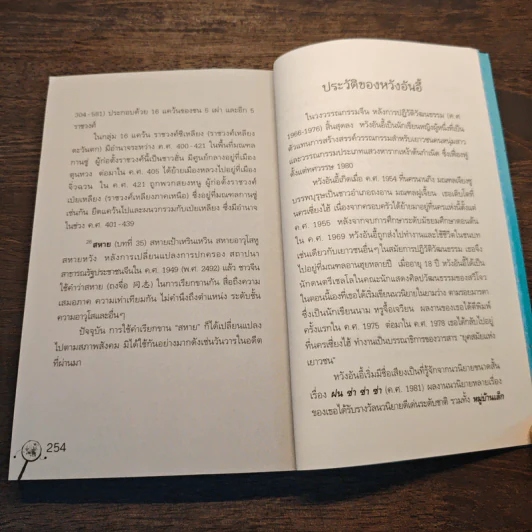 304-581) ประกอบด้วย 16 แคว้นของชน 5 เผ่า และอีก 5
ราชวงศ์
ในกลุ่ม 16 แคว้น ราชวงศ์ซีเหลียง (ราชวงศ์เหลียง
ตะวันตก) มีอำนาจระหว่าง ค.ศ. 400-421 ในพื้นที่มณฑล
กานซู่ ผู้ก่อตั้งราชวงศ์นี้เป็นชาวฮั่น มีศูนย์กลางอยู่ที่เมือง
ตุนหวง ต่อมาใน ค.ศ. 405 ได้ย้ายเมืองหลวงไปอยู่ที่เมือง
จิ่วฉวน ใน ค.ศ. 421 ถูกพวกสยงหนู ผู้ก่อตั้งราชวงศ์
เป่ยเหลียง (ราชวงศ์เหลียงภาคเหนือ) ซึ่งอยู่ที่มณฑลกานซู่
เช่นกัน ยึดแคว้นไปและผนวกรวมกับเป่ยเหลียง ซึ่งมีอำนาจ
ในช่วง ค.ศ. 401-439
สหาย (บทที่ 35) สหายเป้าเหรินเหวิน สหายอาวุโสหู
สหายหวัง หลังการเปลี่ยนแปลงการปกครอง สถาปนา
สาธารณรัฐประชาชนจีนใน ค.ศ. 1949 (พ.ศ. 2492) แล้ว ชาวจีน
ใช้คำว่าสหาย (ถงจื้อ 同志) ในการเรียกขานกัน สื่อถึงความ
เสมอภาค ความเท่าเทียมกัน ไม่คำนึงถึงตำแหน่ง ระดับชั้น
ความอาวุโสและอื่นๆ
ปัจจุบัน การใช้คำเรียกขาน "สหาย" ก็ได้เปลี่ยนแปลง
ไปตามสภาพสังคม มิได้ใช้กันอย่างมากดังเช่นวันวารในอดีต
ที่ผ่านมา
254
ประวัติของหวังอันอี้
ในวงวรรณกรรมจีน หลังการปฏิวัติวัฒนธรรม (ค.ศ.
1966-1976) สิ้นสุดลง หวังอันอี้เป็นนักเขียนหญิงผู้หนึ่งที่เป็น
ตัวแทนการสร้างสรรค์วรรณกรรมสำหรับเยาวชนคนหนุ่มสาว
และวรรณกรรมประเภทแสวงหารากเหง้าต้นกำเนิด ซึ่งเฟื่องฟู
ตั้งแต่ทศวรรษ 1980
หวังอันอี้เกิดเมื่อ ค.ศ. 1954 ที่นครนานกิง มณฑลเจียงซู
บรรพบุรุษเป็นชาวอำเภอถงอาน มณฑลฝูเจี้ยน เธอเติบโตที่
นครเซี่ยงไฮ้ เนื่องจากครอบครัวได้ย้ายมาอยู่ที่นครแห่งนี้ตั้งแต่
ค.ศ. 1955 หลังจากจบการศึกษาระดับมัธยมศึกษาตอนต้น
ใน ค.ศ. 1969 หวังอันอี้ถูกส่งไปทำงานและใช้ชีวิตในชนบท
เช่นเดียวกับเยาวชนอื่นๆ ในสมัยการปฏิวัติวัฒนธรรม เธอจึง
ไปอยู่ที่มณฑลอานฮุยหลายปี เมื่ออายุ 18 ปี หวังอันอี้ได้เป็น
นักดนตรีเชลโลในคณะนักแสดงศิลปวัฒนธรรมของสวีโจว
ในตอนนี้เองที่เธอได้เริ่มเขียนนวนิยายในยามว่าง ตามรอยมารดา
ซึ่งเป็นนักเขียนนาม หรูจื้อเจวียน ผลงานของเธอได้ตีพิมพ์
ครั้งแรกใน ค.ศ. 1975 ต่อมาใน ค.ศ. 1978 เธอได้กลับไปอยู่
ที่นครเซี่ยงไฮ้ ทำงานเป็นบรรณาธิการของวารสาร "ยุคสมัยแห่ง
เยาวชน"
หวังอันอี้เริ่มมีชื่อเสียงเป็นที่รู้จักจากนวนิยายขนาดสั้น
เรื่อง ฝน ซ่า ซ่า ซ่า (ค.ศ. 1981) ผลงานนวนิยายหลายเรื่อง
ของเธอได้รับรางวัลนวนิยายดีเด่นระดับชาติ รวมทั้ง หมู่บ้านเล็ก